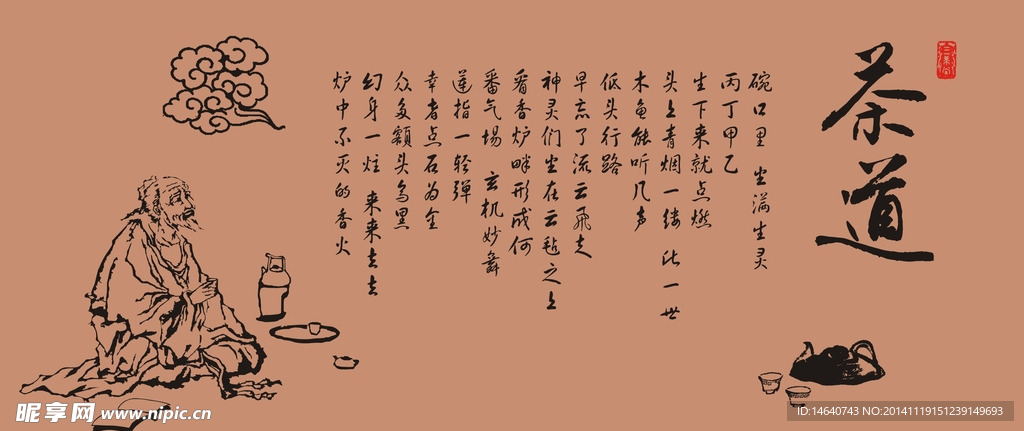 茶道
碗口里 坐满生灵
丙丁甲乙
生下来就点燃
头上青烟一缕 比一世
木鱼能听几声
低头行路
早忘了流云飞走
神灵们坐在云毡之上
看香炉畔形成何
番气场 玄机妙舞
莲指一轻弹
幸者点石为金
众多额头乌黑
幻身一炷 来来去去
炉中不灭的香火
昵享网 www.nipic.cn
ID:14640743 NO:20141119151239149693